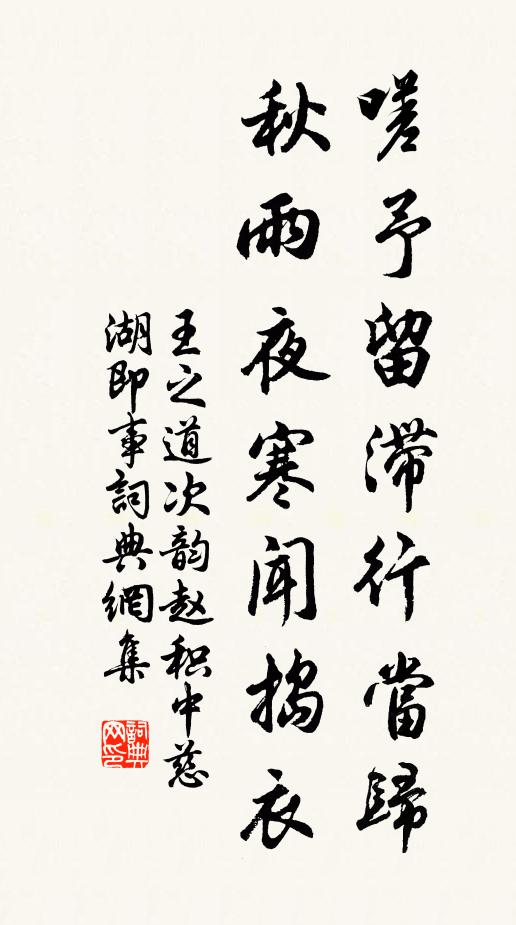 嗟予留滯行當歸
秋雨夜寒聞搗衣
王之道次韵赵积中慈
湖即事詞典網集
詞典
网印